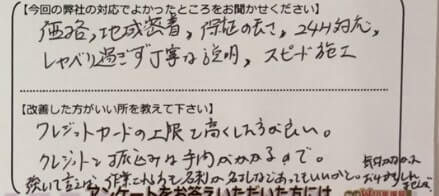 【今回の弊社の対応でよかったところをお聞かせください】
価格,地域密着,保証の長さ,24H対応,
しゃべり過ぎず丁寧な説明,スピード施工
【改善した方がいい所を教えて下さい】
クレジットカードの上限を高くした方が良い。
クレジットと振込みは手間がかかるので。
強いて言えば、作業に来られた方の名刺があってもいいかと。
アンケートをお答えいただいた方には